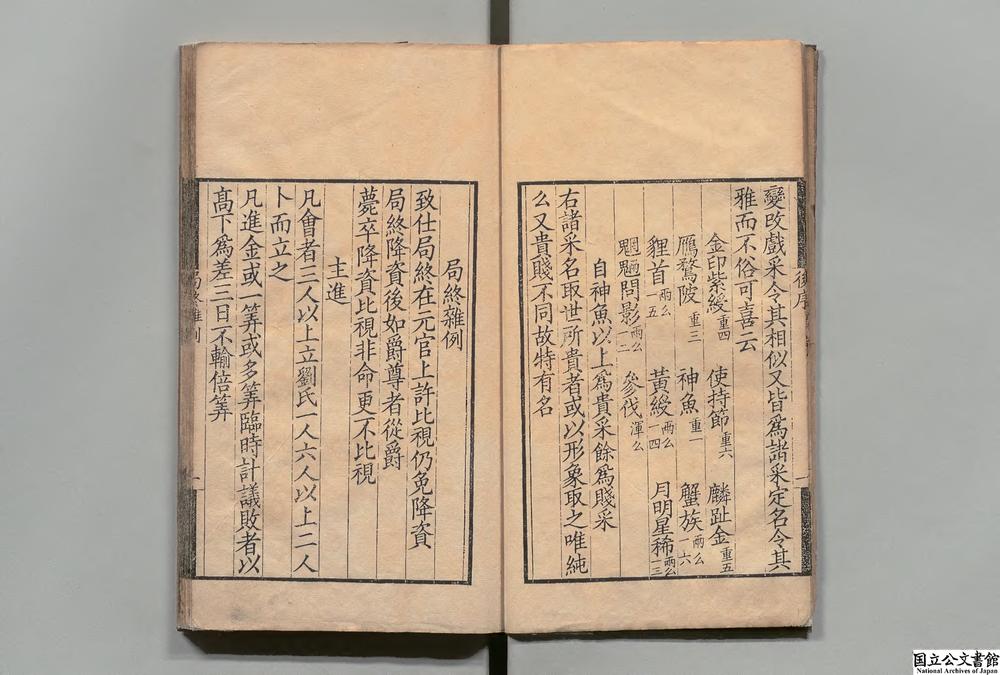 變改戲采令其相似又皆爲諸采定名令其
雅而不俗可喜云
金印紫綬重四 使持節重六 麟趾金重五
鴈鶩陂重三 神魚重一 蟹族兩么一六
貍首兩么一五 黃綬兩么一四 月明星稀兩么一三
魍魎問影兩么一二 參伐渾么
自神魚以上爲貴采餘爲賤采
右諸采名取世所貴者或以形象取之唯純
么又貴賤不同故特有名
後序
局終雜例
致仕局終在元官上許比視仍免降資
局終降資後如爵尊者從爵
薨卒降資比視非命更不比視
主進
凡會者三人以上立劉氏一人六人以上二人
卜而立之
凡進金或一筭或多筭臨時計議敗者以
髙下爲差三日不輸倍筭
局終雜例
一
国立公文書館
National Archives of Japan